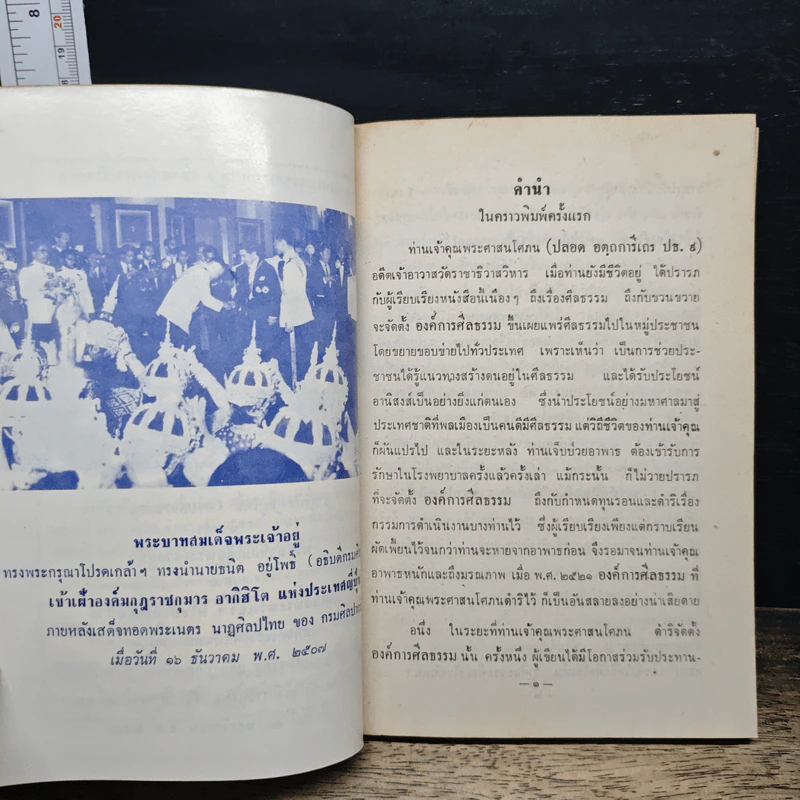 8
20
19
18
พระบาทสมเด็จพระเจ้าอยู่
ทรงพระกรุณาโปรดเกล้าฯ ทรงนำนายธนิต อยู่โพธิ์ (อธิบดีกรมศิ
เข้าเฝ้าองค์มกุฎราชกุมาร อากิฮิโต แห่งประเทศญี่ปุ่น
ภายหลังเสด็จทอดพระเนตร นาฏศิลปไทย ของ กรมศิลปาก
เมื่อวันที่ ๑๖ ธันวาคม พ.ศ. ๒๕๐๗
คำนำ
ในคราวพิมพ์ครั้งแรก
ท่านเจ้าคุณพระศาสนโศภน (ปลอด อตฺถการีเถร ปธ. ๙)
อดีตเจ้าอาวาสวัดราชาธิวาสวิหาร เมื่อท่านยังมีชีวิตอยู่ ได้ปรารภ
กับผู้เรียบเรียงหนังสือนี้เนืองๆ ถึงเรื่องศีลธรรม ถึงกับขวนขวาย
จะจัดตั้ง องค์การศีลธรรม ขึ้นเผยแพร่ศีลธรรมไปในหมู่ประชาชน
โดยขยายขอบข่ายไปทั่วประเทศ เพราะเห็นว่า เป็นการช่วยประ-
ชาชนได้รู้แนวทางสร้างตนอยู่ในศีลธรรม และได้รับประโยชน์
อานิสงส์เป็นอย่างยิ่งแก่ตนเอง ซึ่งนำประโยชน์อย่างมหาศาลมาสู่
ประเทศชาติที่พลเมืองเป็นคนดีมีศีลธรรม แต่วิถีชีวิตของท่านเจ้าคุณ
ก็ผันแปรไป และในระยะหลัง ท่านเจ็บป่วยอาพาธ ต้องเข้ารับการ
รักษาในโรงพยาบาลครั้งแล้วครั้งเล่า แม้กระนั้น ก็ไม่วายปรารภ
ที่จะจัดตั้ง องค์การศีลธรรม ถึงกับกำหนดทุนรอนและดำริเรื่อง
กรรมการดำเนินงานบางท่านไว้ ซึ่งผู้เรียบเรียงเพียงแต่กราบเรียน
ผัดเพี้ยนไว้จนกว่าท่านจะหายจากอาพาธก่อน จึงรอมาจนท่านเจ้าคุณ
อาพาธหนักและถึงมรณภาพ เมื่อ พ.ศ. ๒๕๒๑ องค์การศีลธรรม ที่
ท่านเจ้าคุณพระศาสนโศภนดำริไว้ ก็เป็นอันสลายลงอย่างน่าเสียดาย
อนึ่ง ในระยะที่ท่านเจ้าคุณพระศาสนโศภน ดำริจัดตั้ง
องค์การศีลธรรม นั้น ครั้งหนึ่ง ผู้เขียนได้มีโอกาสร่วมรับประทาน-
— ๑ —